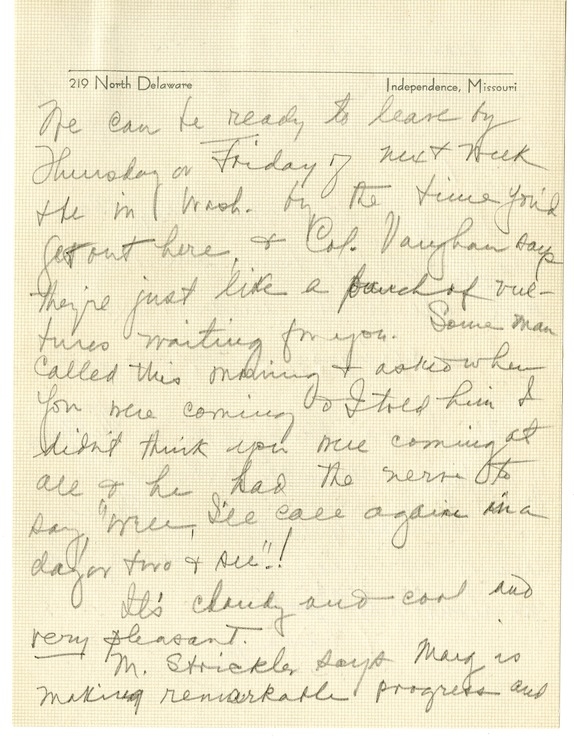 219 North Delaware
Independence, Missouri
We can be ready to leave by
Thursday or Friday of next week
& be in Wash. by the time you'd
get out here, & Col. Vaughan says
they're just like a bunch of vul-
tures waiting for you. Some man
called this morning & asked when
you were coming & I told him I
didn't think you were coming at
all & he had the nerve to
say, "Well, I'll call again in a
day or two & see"!
It's cloudy and cool and
very pleasant.
M. Strickler says Marg is
making remarkable progress and